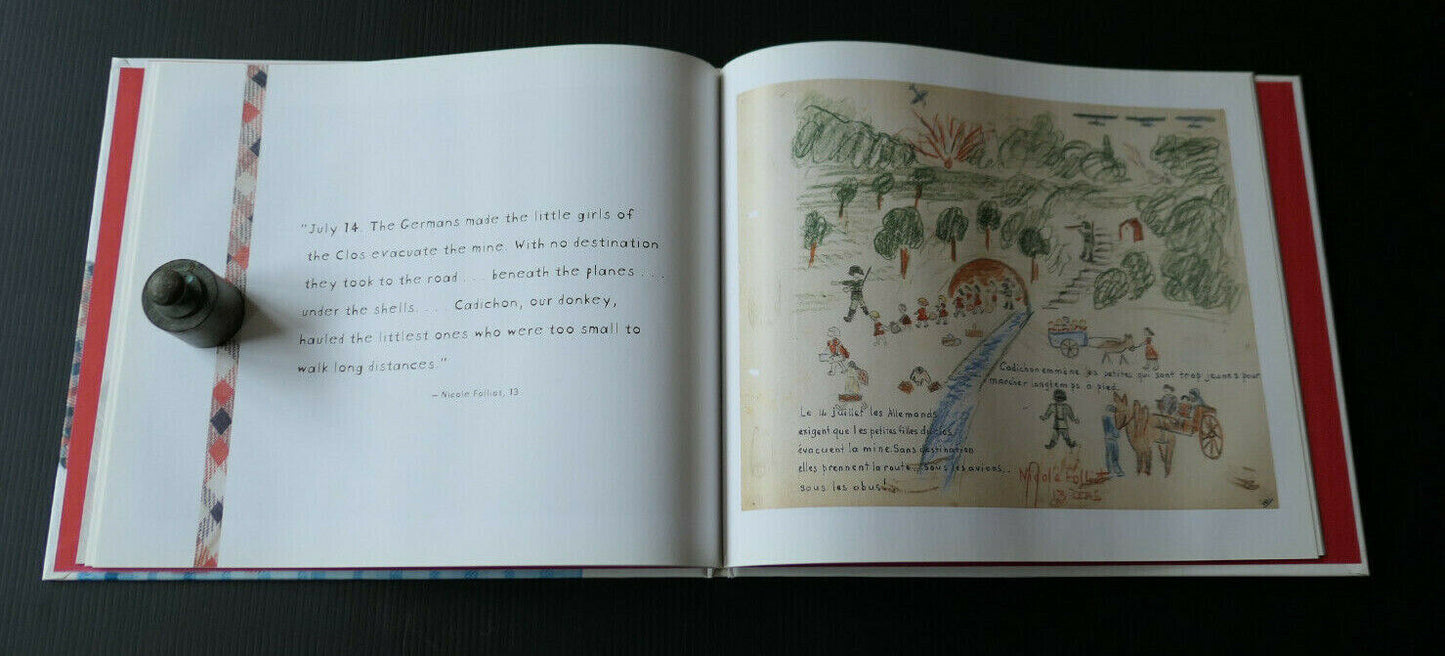 "July 14. The Germans made the little girls of
the Clos evacuate the mine. With no destination
they took to the road . . . beneath the planes . . .
under the shells. . . . Cadichon, our donkey,
hauled the littlest ones who were too small to
walk long distances."
— Nicole Folliot, 13
Cadichon emmène les petites qui sont trop jeunes pour
marcher longtemps à pied.
Le 14 Juillet les Allemands
exigent que les petites filles du clos
évacuent la mine. Sans destination
elles prennent la route... sous les avions...
sous les obus!
13 ans